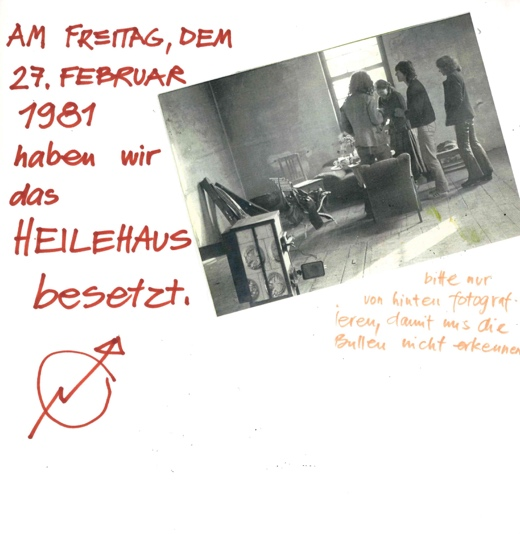 AM FREITAG, DEM
27. FEBRUAR
1981
haben wir
das
HEILEHAUS
besetzt.
bitte nur
von hinten fotograf-
ieren, damit uns die
Bullen nicht erkennen